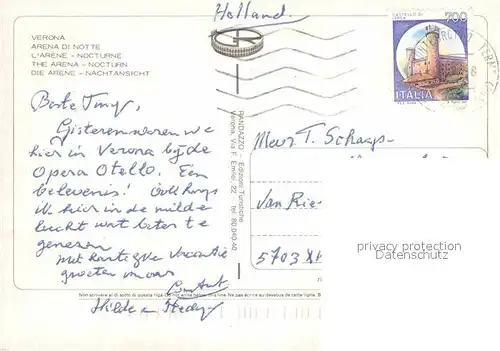 Holland.
VERONA
ARENA DI NOTTE
L'ARENE - NOCTURNE
THE ARENA - NOCTURN
DIE ARENE - NACHTANSICHT
CASTELLO DI
700
ITALIA
Beste Tmy,
Gisteren waren we
hier in Verona bij de
Opera Otello. Een
belevenis!
ik hier in de milde
lucht wat beter te
genezen
met hartelijke vacantie
groeten
Hilde
RANDAZZO - Edizioni Turistiche
Verona, Via F. Emilei, 22 tel. 80.040-40
Mevr. T. Schaap-
Van Rie
5703 X
privacy protection
Datenschutz
Non scrivere al di sotto di questa riga